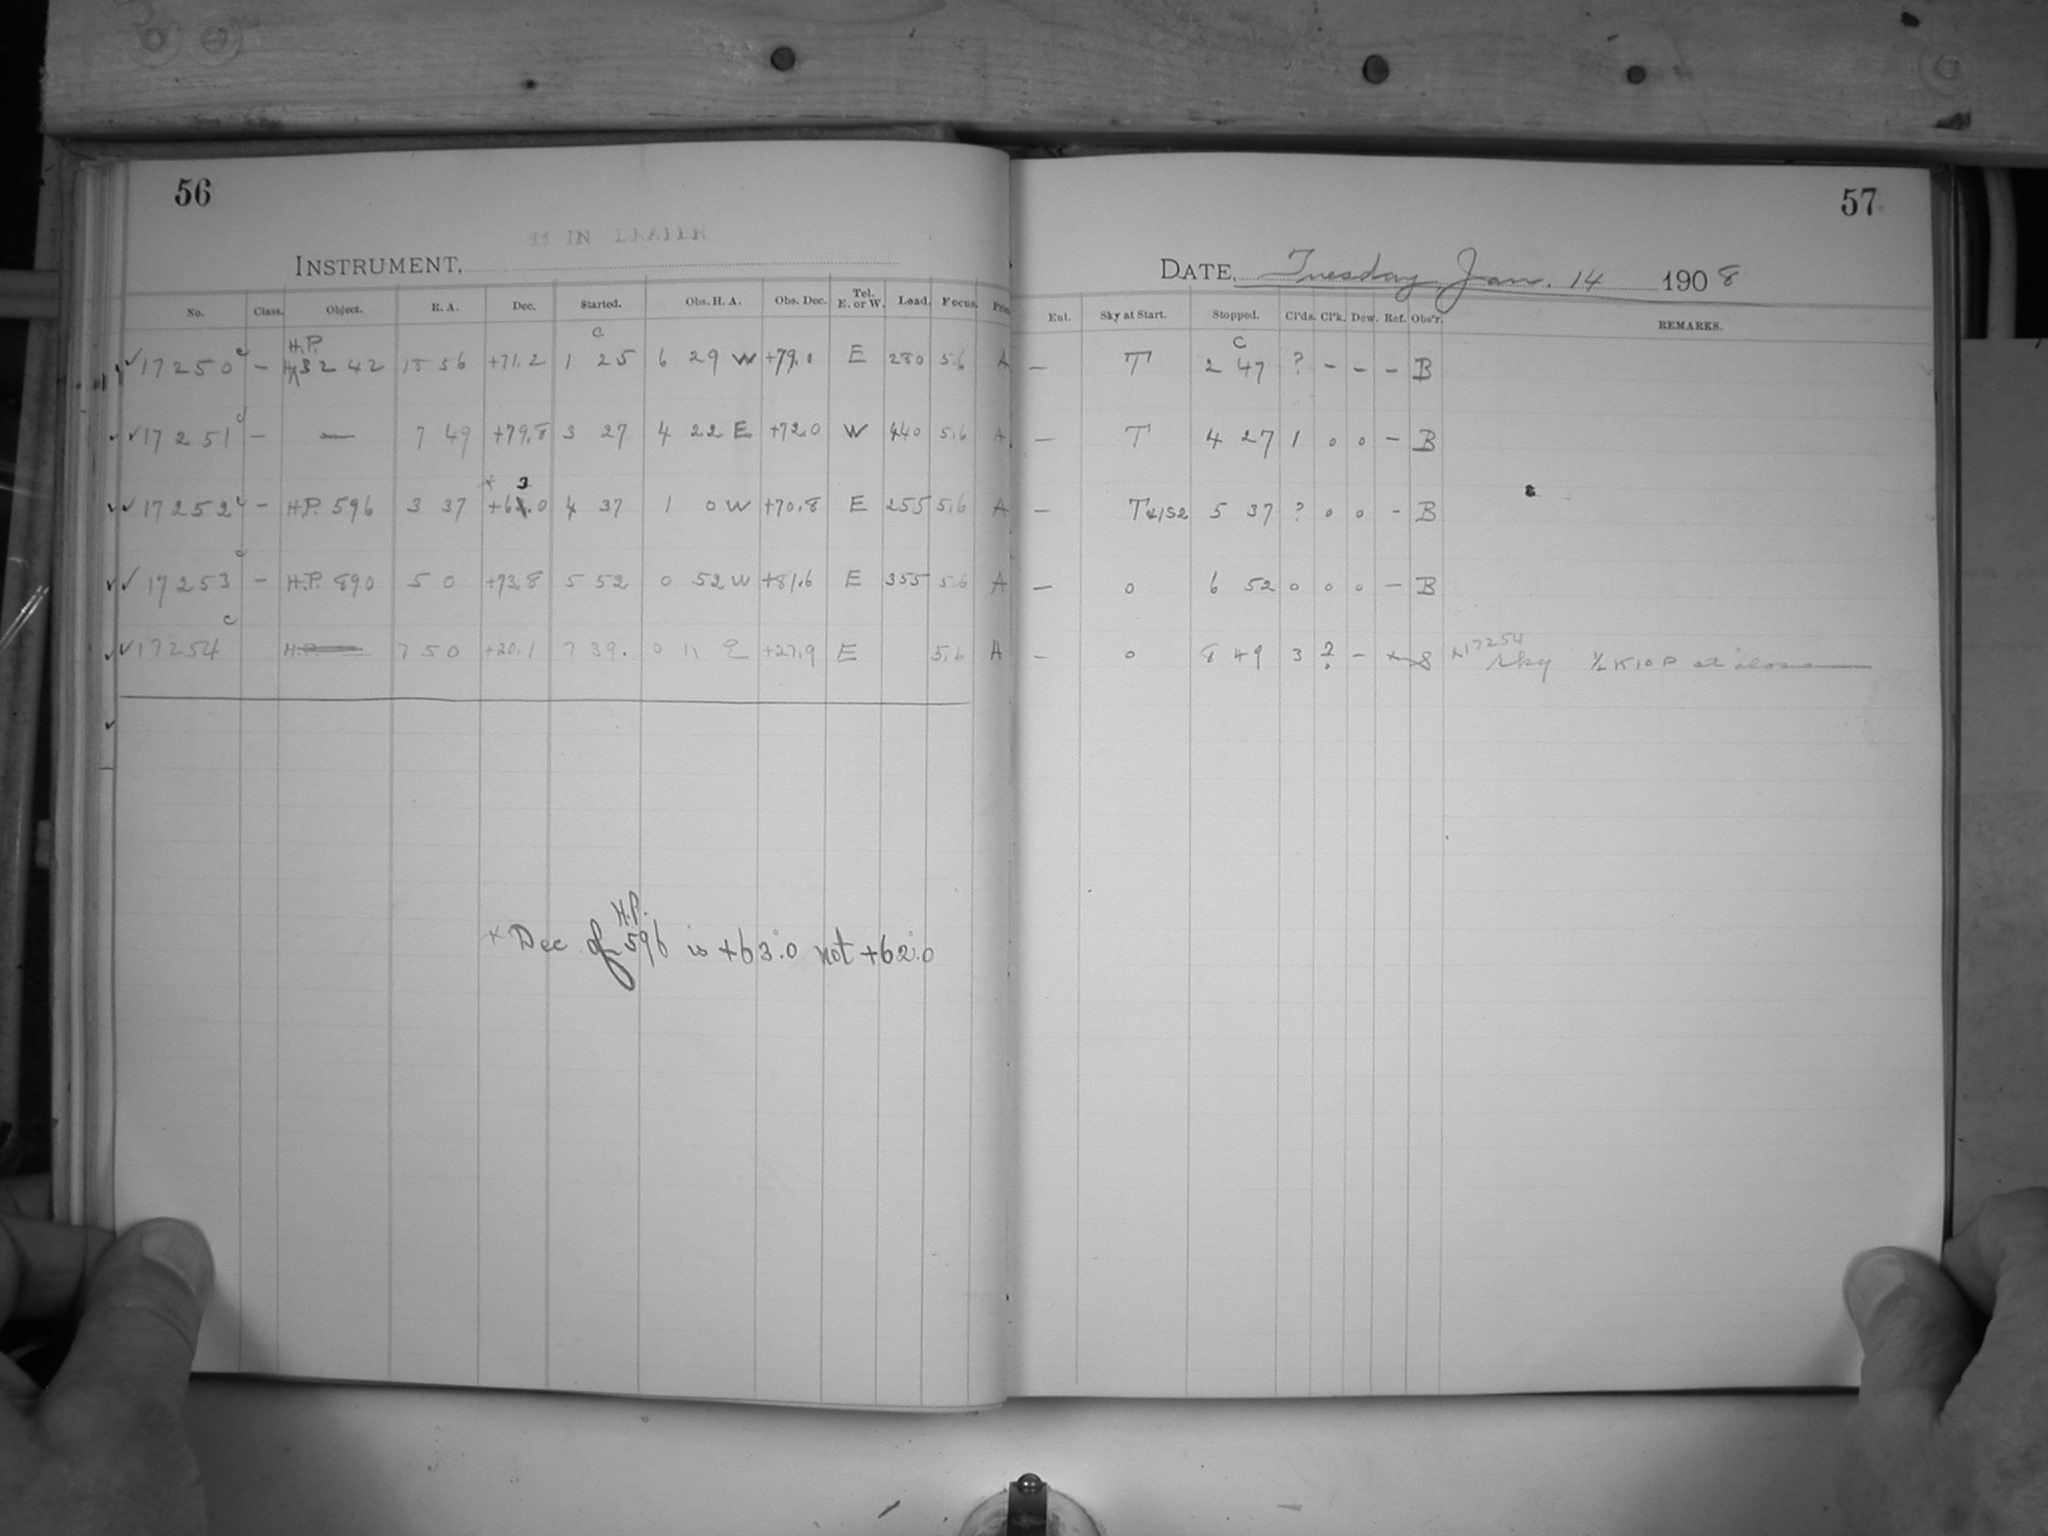 56
INSTRUMENT,
No. Class. Object. R. A. Dec. Started. Obs. H. A. Obs. Dec. Tel. E. or W. Load. Focus.
✓17250 – H.P. 3242 18 56 +71.2 1 25 6 29 W +79.0 E 280 5.6 A
✓17251 – — 7 49 +79.8 3 27 4 22 E +72.0 W 440 5.6 A
✓17252 – H.P. 596 3 37 +63.0 4 37 1 0 W +70.8 E 255 5.6 A
✓17253 – H.P. 890 5 0 +73.8 5 52 0 52 W +81.6 E 355 5.6 A
✓17254 7 50 +20.1 7 39. 0 11 E +27.9 E 5.6 A
+ Dec of H.P. 596 is +63°.0 not +62°.0
57
DATE, Tuesday, Jan. 14 1908
Enl. Sky at Start. Stopped. Cl'ds. Cl'k. Dew. Ref. Obs'r. REMARKS.
— T 2 47 ? – – – B
— T 4 27 1 0 0 – B
— 5 37 ? 0 0 – B
— 0 6 52 0 0 0 – B
— 0 8 49 3 ? – S 17254 Sky at close